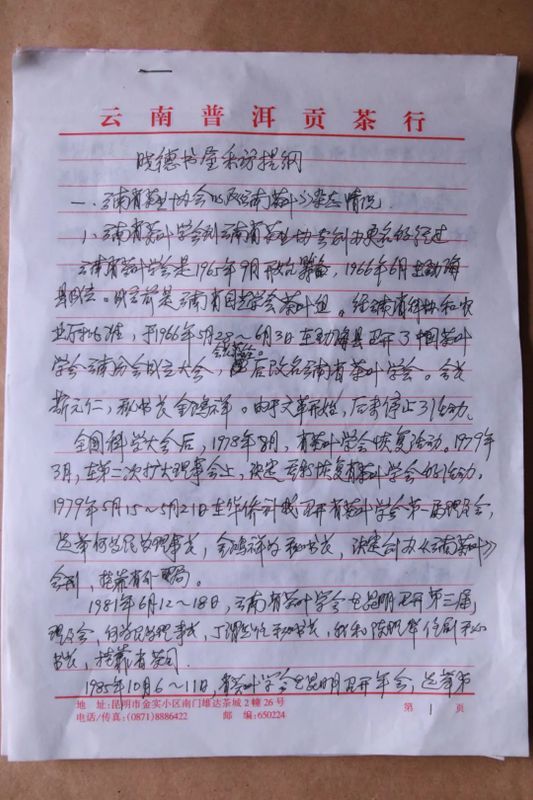 云南普洱贡茶行
晓德书屋采访提纲
一、云南省茶业协会以及云南茶叶杂志情况
1、云南省茶叶学会到云南省茶业协会创办更名的经过
云南省茶叶学会是1965年9月开始筹备，1966年6月在勐海
县成立。成立前是云南省园艺学会茶叶组。经云南省科协和农
业厅批准，于1966年5月28～6月3日在勐海县召开了中国茶叶
学会云南分会成立大会，后改名云南省茶叶学会。会长
斯元仁，秘书长金鸿祥。由于文革开始，后来停止了活动。
全国科学大会后，1978年8月，省茶叶学会恢复活动。1979年
3月，在第二次扩大理事会上，决定恢复省茶叶学会的活动。
1979年5月15～5月21日在华侨召开省茶叶学会第一届理事会，
选举何为理事长，金鸿祥为秘书长，决定创办《云南茶叶》
会刊，挂靠省外贸局。
1981年6月12～18日，云南省茶叶学会在昆明召开第三届
理事会，任理事长，丁渭然任秘书长，我和任副秘
书长，挂靠省茶司。
1985年10月6～11日，省茶叶学会在昆明召开年会，选举第
地 址：昆明市金实小区南门雄达茶城2幢26号
电话/传真：(0871)8886422 邮 编：650224
第 1 页